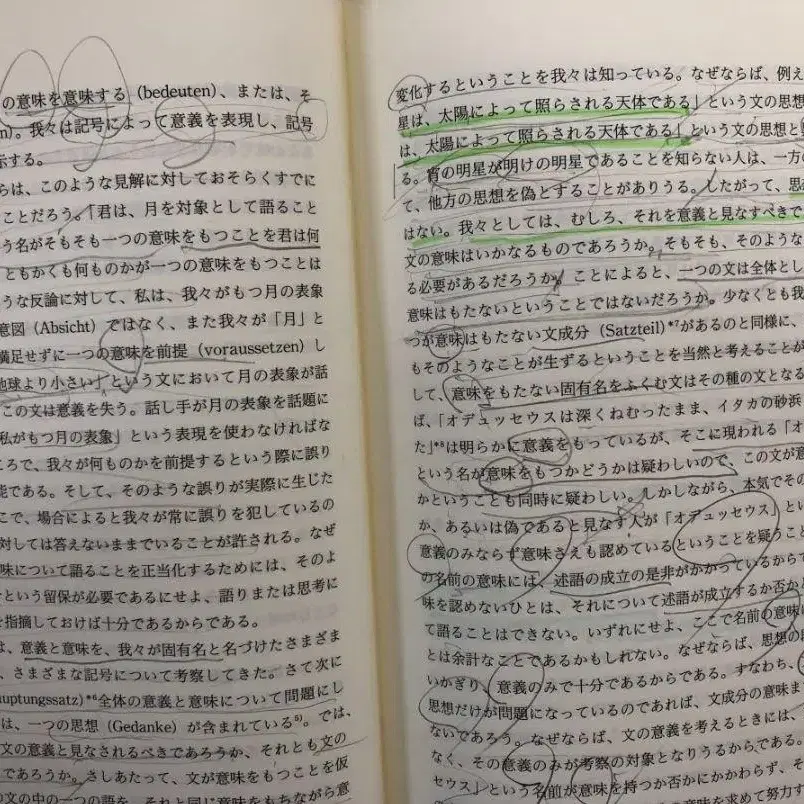 の意味を意味する（bedeuten）、または、そ
我々は記号によって意義を表現し、記号
示する。
らは、このような見解に対しておそらくすでに
ことだろう。「君は、月を対象として語ること
う名がそもそも一つの意味をもつことを君は何
ともかくも何ものかが一つの意味をもつことは
うな反論に対して、私は、我々がもつ月の表象
意図（Absicht）ではなく、また我々が「月」と
満足せずに一つの意味を前提（voraussetzen）し
地球より小さい」という文において月の表象が話
この文は意義を失う。話し手が月の表象を話題に
私がもつ月の表象」という表現を使わなければな
ころで、我々が何ものかを前提するという際に誤り
能である。そして、そのような誤りが実際に生じた
こで、場合によると我々が常に誤りを犯しているの
対しては答えないままでいることが許される。なぜ
味について語ることを正当化するためには、そのよ
という留保が必要であるにせよ、語りまたは思考に
を指摘しておけば十分であるからである。
は、意義と意味を、我々が固有名と名づけたさまざま
、さまざまな記号について考察してきた。さて次に
auptungssatz）*6全体の意義と意味について問題にし
は、一つの思想（Gedanke）が含まれている5)。では、
文の意義と見なされるべきであろうか、それとも文の
であろうか。さしあたって、文が意味をもつことを仮
の文の中の一つの語を、それと同じ意味をもちながら意
変化するということを我々は知っている。なぜならば、例え
星は、太陽によって照らされる天体である」という文の思想
は、太陽によって照らされる天体である」という文の思想と
る。宵の明星が明けの明星であることを知らない人は、一方の
て、他方の思想を偽とすることがありうる。したがって、思
はない。我々としては、むしろ、それを意義と見なすべきで
文の意味はいかなるものであろうか。そもそも、そのような
る必要があるだろうか。ことによると、一つの文は全体とし
意味はもたないということではないだろうか。少なくとも我
つが意味はもたない文成分（Satzteil）*7があるのと同様に、
もそのようなことが生ずるということを当然と考えることが
して、意味をもたない固有名をふくむ文はその種の文となる
ば、「オデュッセウスは深くねむったまま、イタカの砂浜
た」*8は明らかに意義をもっているが、そこに現われる「オ
という名が意味をもつかどうかは疑わしいので、この文が意
かということも同時に疑わしい。しかしながら、本気でその
か、あるいは偽であると見なす人が「オデュッセウス」とい
意義のみならず意味さえも認めているということを疑うこ
の名前の意味には、述語の成立の是非がかかっているからで
味を認めないひとは、それについて述語が成立するか否か
て語ることはできない。いずれにせよ、ここで名前の意味
とは余計なことであるかもしれない。なぜならば、思想の
いかぎり、意義のみで十分であるからである。すなわち、
思想だけが問題になっているのであれば、文成分の意味ま
ないであろう。なぜならば、文の意義を考えるときには、
なく、その意義のみが考察の対象となりうるからである。
セウス」という名前が意味を持つか否かにかかわらず、そ
意味を求めて努力す